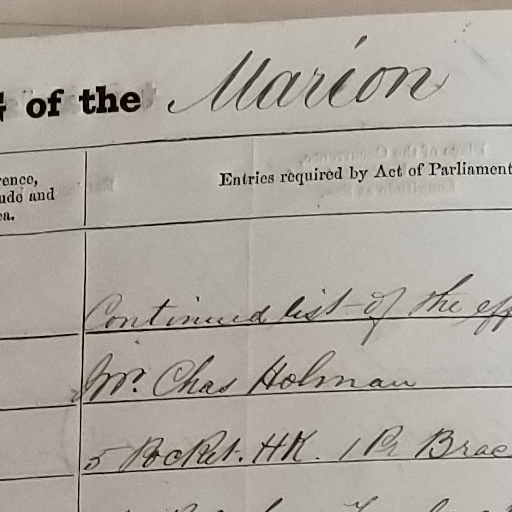 of the Marion
Entries required by Act of Parliament
ude and
Continued list of the eff
Mr. Chas Holman
5 Pocket. HK. 1 Pr Brac